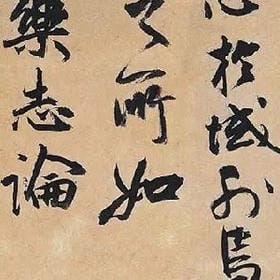 於域外焉
之所如
樂志論